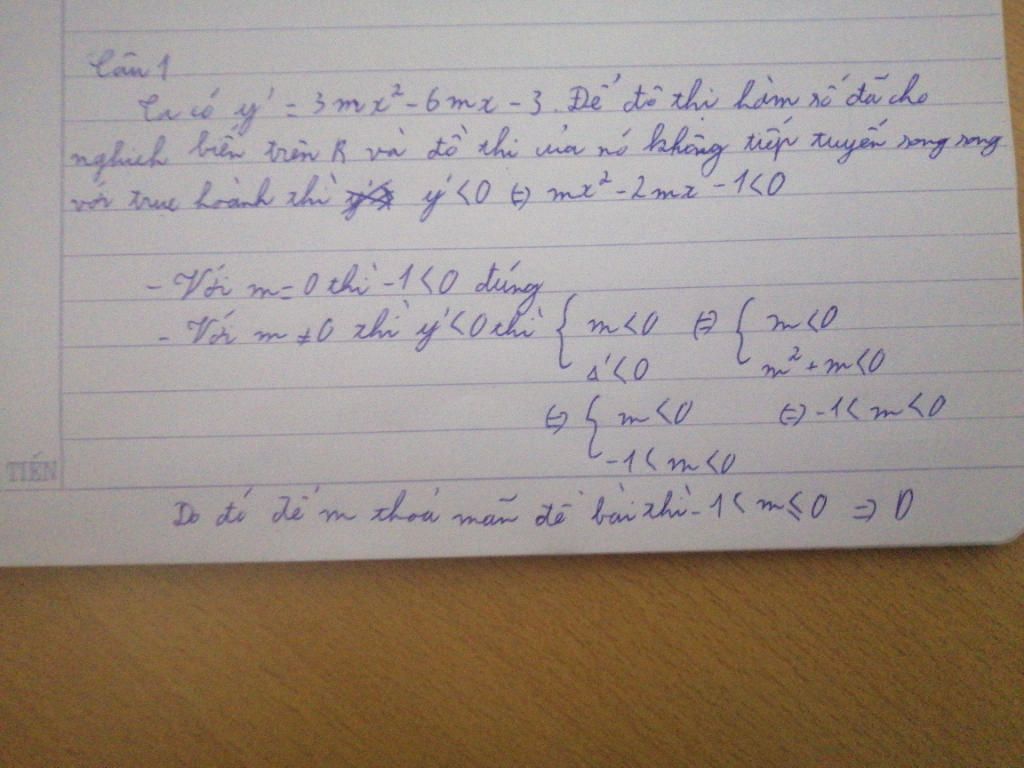 Câu 1
Ta có y' = 3mx² - 6mx - 3. Để đồ thị hàm số đã cho
nghịch biến trên R và đồ thị của nó không tiếp tuyến song song
với trục hoành thì y' < 0 ⇔ mx² - 2mx - 1 < 0
- Với m = 0 thì -1 < 0 đúng
- Với m ≠ 0 thì y' < 0 thì { m < 0 ⇔ { m < 0
Δ' < 0 m² + m < 0
⇔ { m < 0 ⇔ -1 < m < 0
-1 < m < 0
TIẾN
Do đó để m thoả mãn đề bài thì -1 < m ≤ 0 ⇒ D